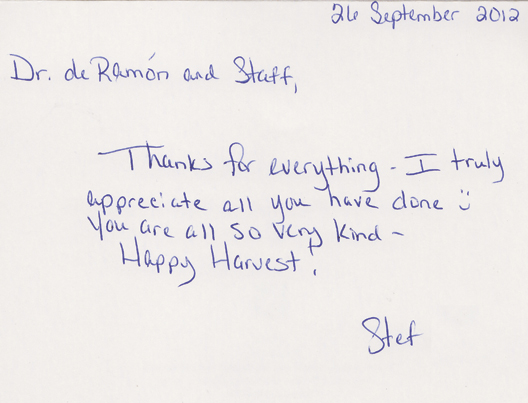 26 September 2012
Dr. de Ramón and Staff,
Thanks for everything - I truly
appreciate all you have done ü
You are all so very kind -
Happy Harvest!
Stef